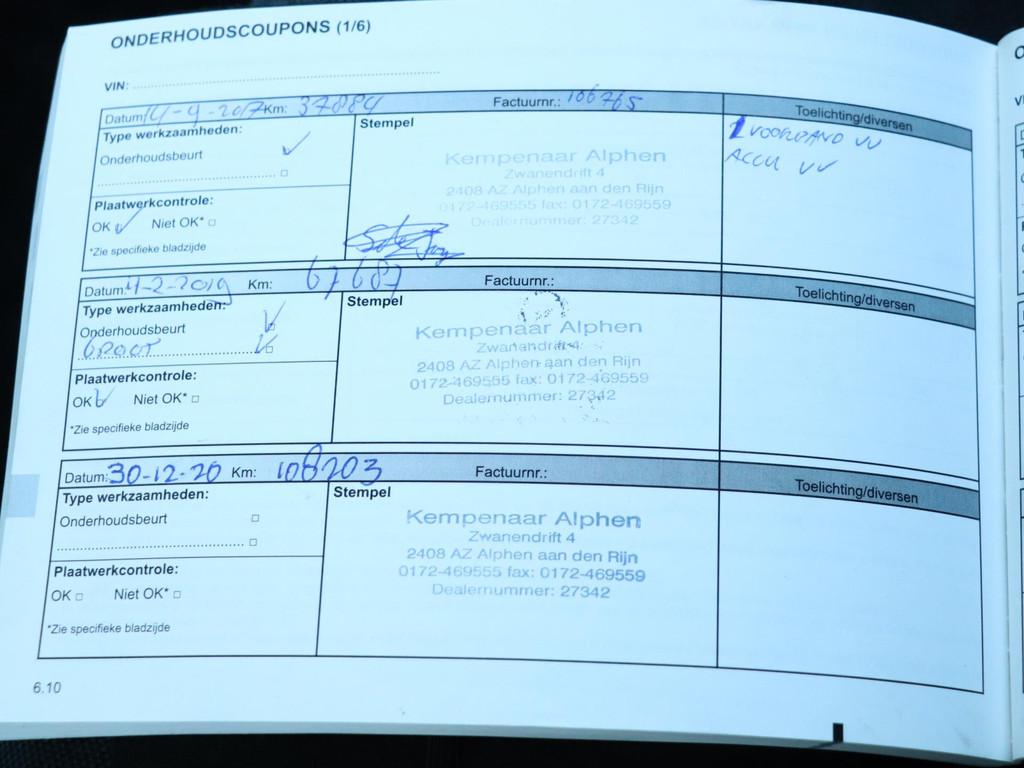 ONDERHOUDSCOUPONS (1/6)
VIN:
Datum: 14-9-2017 Km: 37884 Factuurnr.: 106765 Toelichting/diversen
Type werkzaamheden:
Onderhoudsbeurt
Plaatwerkcontrole:
OK Niet OK*
*Zie specifieke bladzijde
Stempel
Kempenaar Alphen
Zwanendrift 4
2408 AZ Alphen aan den Rijn
0172-469555 fax: 0172-469559
Dealernummer: 27342
1 VOORBAND VV
ACCU VV
Datum: 4-2-2019 Km: 67687 Factuurnr.: Toelichting/diversen
Type werkzaamheden:
Onderhoudsbeurt
GROOT
Plaatwerkcontrole:
OK Niet OK*
*Zie specifieke bladzijde
Stempel
Kempenaar Alphen
Zwanendrift 4
2408 AZ Alphen aan den Rijn
0172-469555 fax: 0172-469559
Dealernummer: 27342
Datum: 30-12-20 Km: 108203 Factuurnr.: Toelichting/diversen
Type werkzaamheden:
Onderhoudsbeurt
Plaatwerkcontrole:
OK Niet OK*
*Zie specifieke bladzijde
Stempel
Kempenaar Alphen
Zwanendrift 4
2408 AZ Alphen aan den Rijn
0172-469555 fax: 0172-469559
Dealernummer: 27342
6.10